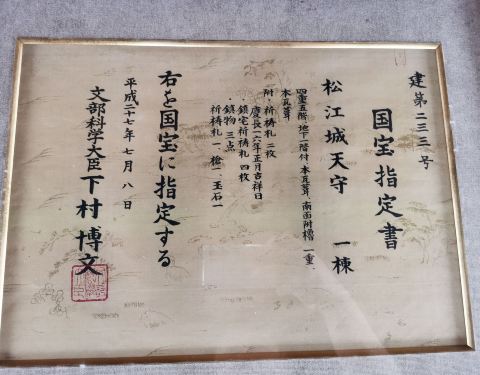 建第二三三号
国宝指定書
松江城天守 一棟
四重五階、地下一階付、本瓦葺、南面附櫓 一重、
本瓦葺
附・祈祷札 二枚
慶長一六年正月吉祥日
鎮宅祈祷札 四枚
・鎮物 三点
祈祷札 一、槍一、玉石一
右を国宝に指定する
平成二十七年七月八日
文部科学大臣 下村博文